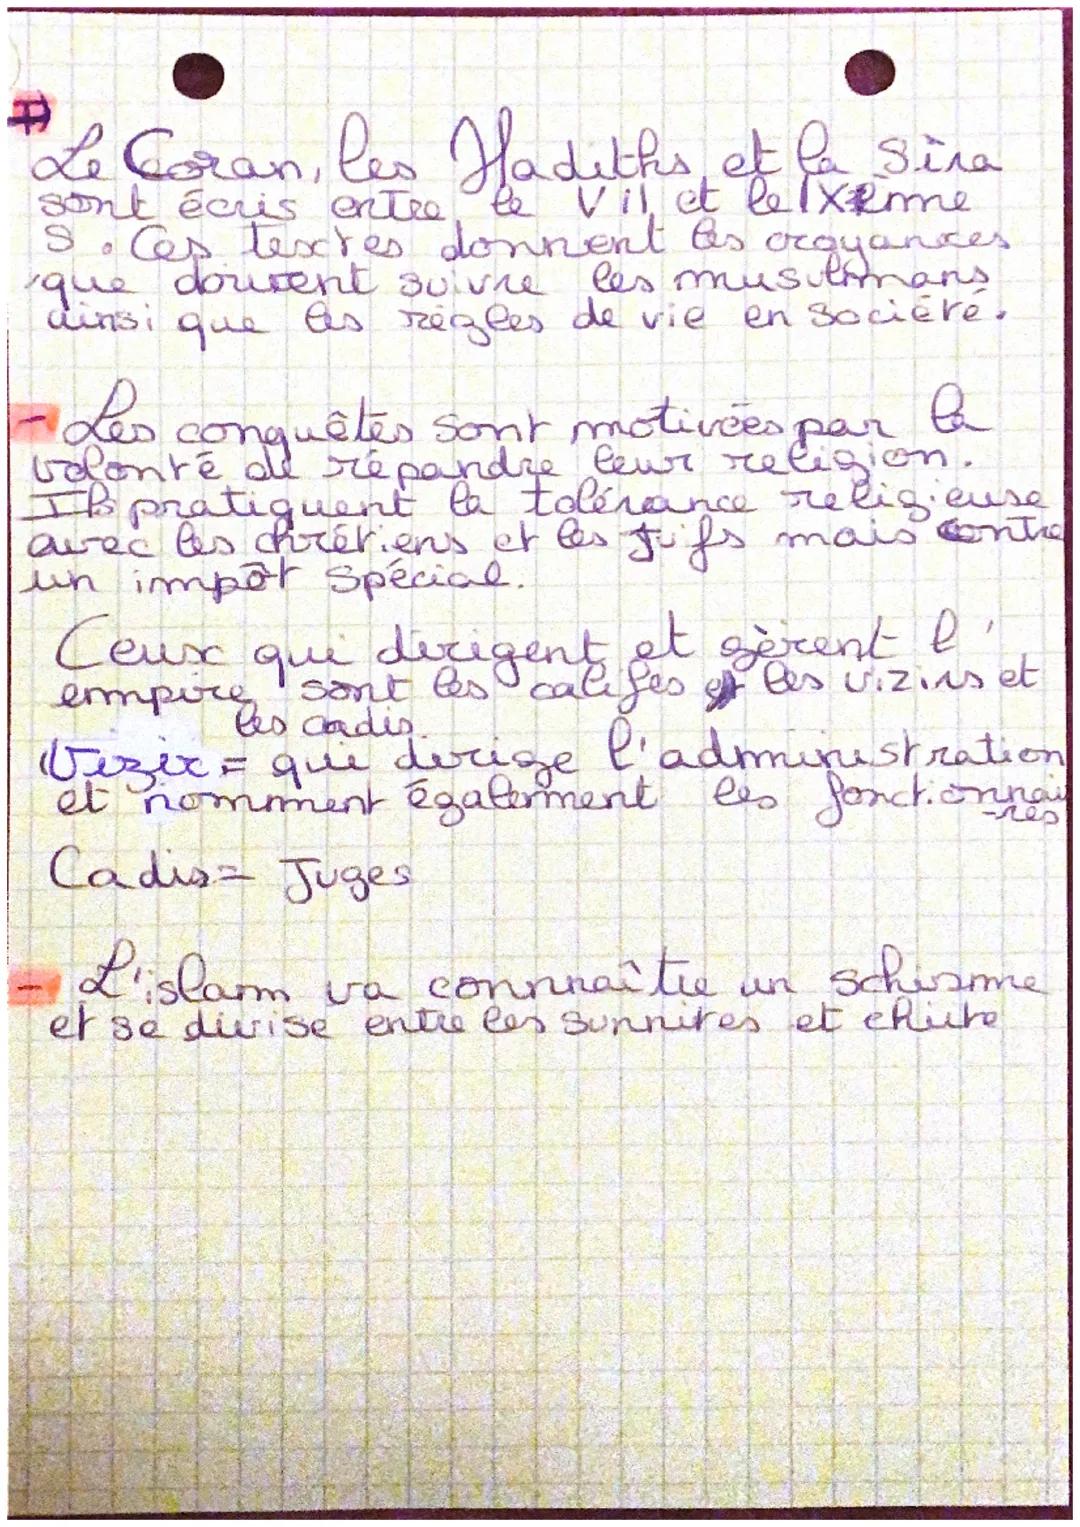 Le Coran, les Hadiths et la Sira
sont écris entre le VII et le IXème
S. Ces textes donnent les croyances
que doivent suivre les musulmans
ainsi que les règles de vie en société.
- Les conquêtes sont motivées par la
volonté de répandre leur religion.
Ils pratiquent la tolérance religieuse
avec les chrétiens et les juifs mais contre
un impôt spécial.
Ceux qui dirigent et gèrent l'
empire sont les califes les vizirs et
les cadis.
Vizir = qui dirige l'administration
et nomment également les fonctionnai
-res
Cadis = Juges
- L'islam va connnaître un schisme
et se divise entre les sunnites et chiite